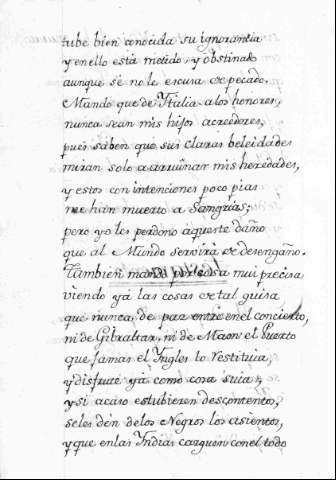 tube bien conocida su ignorantia
y en ello está metido y obstinado
aunque se no le escusa de pecado.
Mando que de Italia a los honores,
nunca sean mis hijos acreedores,
pues saben que sus claras beleidades
miran solo a arruinar mis heredades,
y estos con intenciones poco pias
me han muerto a Sangrias;
pero yo les perdono aqueste daño
que al Mundo servirá de desengaño.
Tambien mando por cosa mui precisa
viendo yá las cosas de tal guisa
que nunca, de paz entre en el concierto,
ni de Gibraltar, ni de Maon el Puerto
que jamas el Yngles lo restituia,
y disfrute yá como cosa suia,
y si acaso estubieren descontentos,
se les dén de los Negros los asientos,
y que en las Yndias carguen con el todo